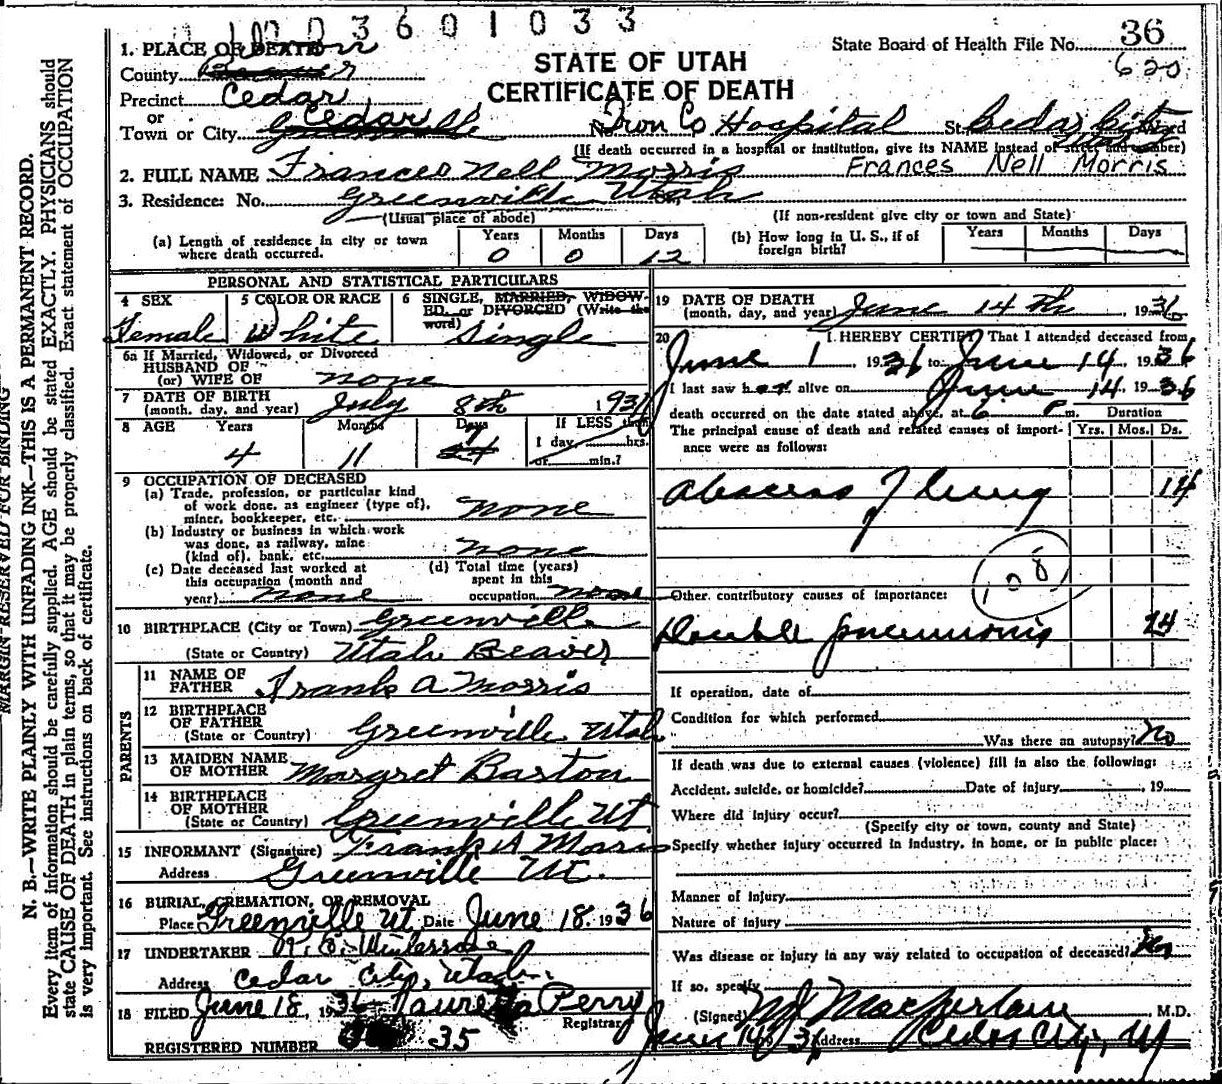 03601033
1. PLACE OF DEATH
Iron
County Beaver
Precinct Cedar
or
Cedar
Town or City Greenville No. Iron Co Hospital St. Cedar City Ward
State Board of Health File No. 36
620
STATE OF UTAH
CERTIFICATE OF DEATH
(If death occurred in a hospital or institution, give its NAME instead of street and number)
2. FULL NAME Frances Nell Morris Frances Nell Morris
3. Residence: No. Greenville Utah
(Usual place of abode) (If non-resident give city or town and State)
(a) Length of residence in city or town where death occurred. Years 0 Months 0 Days 12
(b) How long in U. S., if of foreign birth? Years Months Days
PERSONAL AND STATISTICAL PARTICULARS
4 SEX Female
5 COLOR OR RACE White
6 SINGLE, MARRIED, WIDOWED, or DIVORCED (Write the word) Single
6a If Married, Widowed, or Divorced
HUSBAND OF
(or) WIFE OF none
7 DATE OF BIRTH
(month, day, and year) July 8th 1931
8 AGE Years 4 Months 11 Days If LESS than
1 day, hrs.
or min.?
9 OCCUPATION OF DECEASED
(a) Trade, profession, or particular kind
of work done, as engineer (type of),
miner, bookkeeper, etc. none
(b) Industry or business in which work
was done, as railway, mine
(kind of), bank, etc. none
(c) Date deceased last worked at
this occupation (month and
year) none
(d) Total time (years)
spent in this
occupation none
10 BIRTHPLACE (City or Town) Greenville
(State or Country) Utah Beaver
PARENTS
11 NAME OF
FATHER Frank A Morris
12 BIRTHPLACE
OF FATHER
(State or Country) Greenville Utah
13 MAIDEN NAME
OF MOTHER Margret Barton
14 BIRTHPLACE
OF MOTHER
(State or Country) Greenville Ut.
15 INFORMANT (Signature) Frank A Morris
Address Greenville Ut.
16 BURIAL, CREMATION, OR REMOVAL
Place Greenville Ut. Date June 18. 1936
17 UNDERTAKER
Address Cedar City, Utah.
18 FILED June 18, 1936 Perry
Registrar
REGISTERED NUMBER 35
19 DATE OF DEATH
(month, day, and year) June 14th, 1936
20 I HEREBY CERTIFY That I attended deceased from
June 1, 1936 to June 14, 1936
I last saw her alive on June 14, 1936
death occurred on the date stated above, at 6 P m. Duration
The principal cause of death and related causes of importance were as follows: Yrs. Mos. Ds.
Abscess of lung 14
108
Other contributory causes of importance:
Double pneumonia 24
If operation, date of
Condition for which performed
Was there an autopsy? No
If death was due to external causes (violence) fill in also the following:
Accident, suicide, or homicide? Date of injury , 19
Where did injury occur?
(Specify city or town, county and State)
Specify whether injury occurred in industry, in home, or in public place:
Manner of injury
Nature of injury
Was disease or injury in any way related to occupation of deceased? No
If so, specify
(Signed) MJ Macfarlane M.D.
June 14/36 Address Cedar City, Ut
MARGIN RESERVED FOR BINDING
N. B.—WRITE PLAINLY WITH UNFADING INK—THIS IS A PERMANENT RECORD.
Every item of information should be carefully supplied. AGE should be stated EXACTLY. PHYSICIANS should
state CAUSE OF DEATH in plain terms, so that it may be properly classified. Exact statement of OCCUPATION
is very important. See instructions on back of certificate.